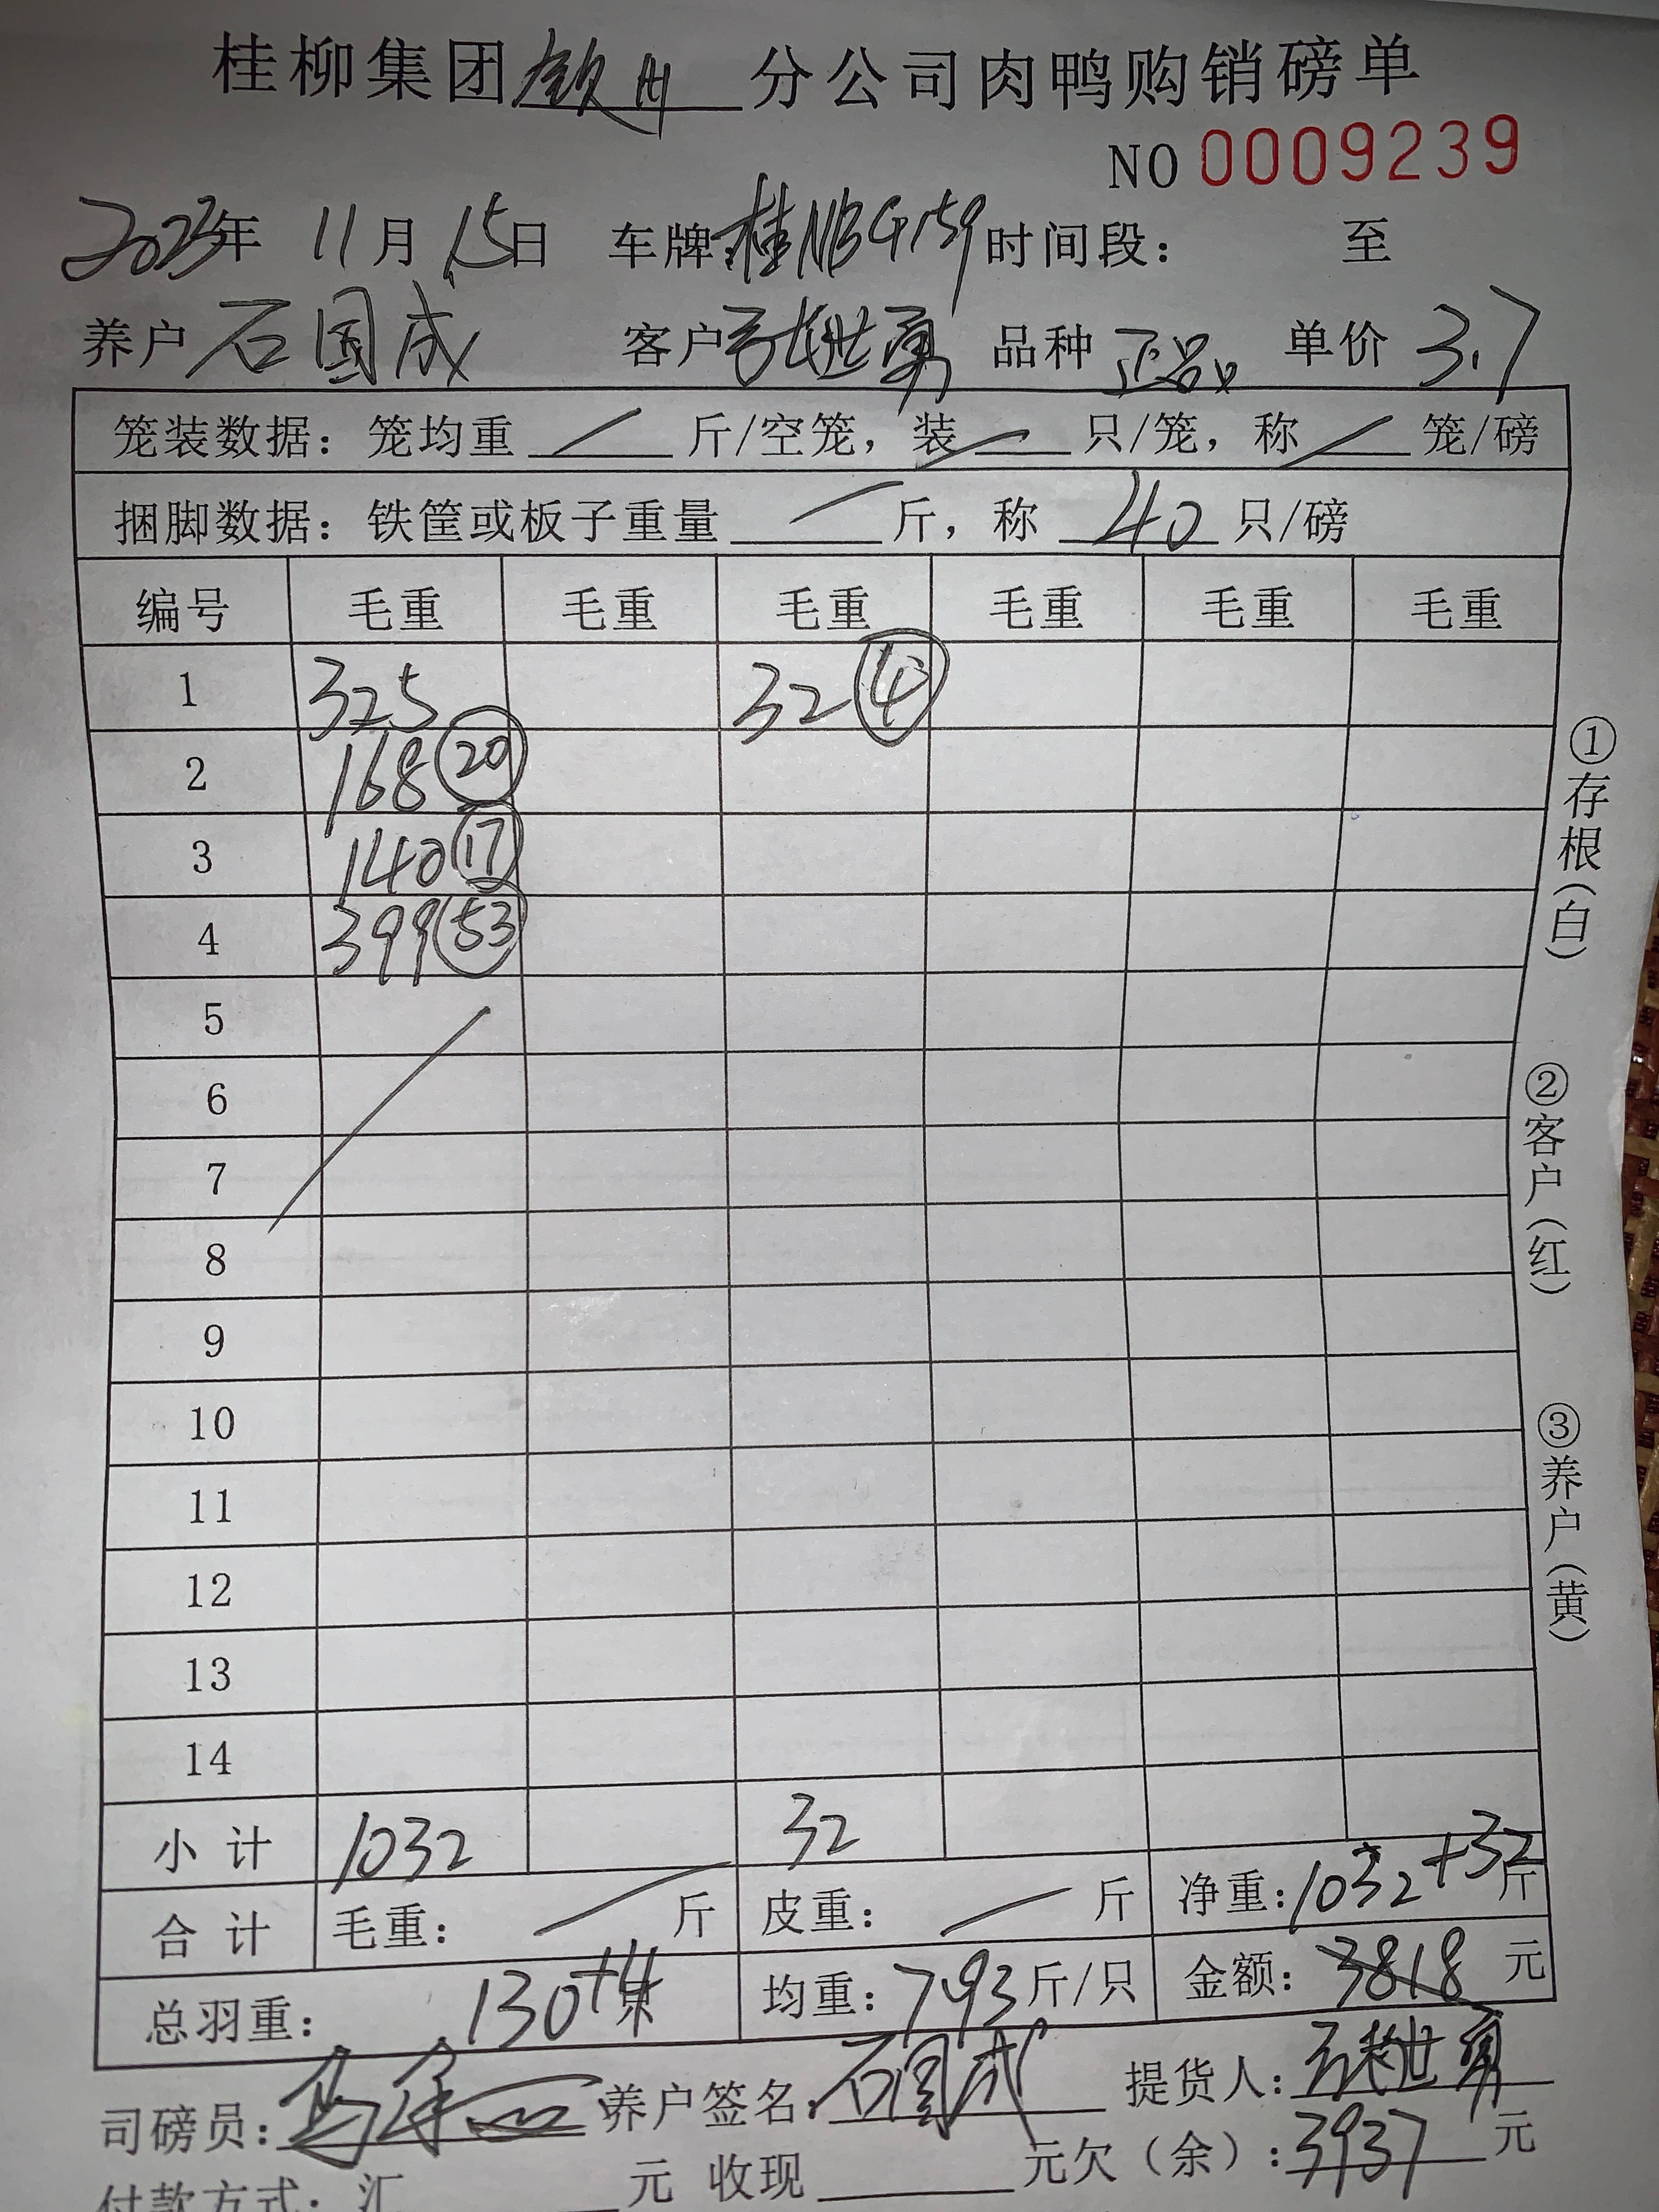 桂柳集团钦州分公司肉鸭购销磅单
NO 0009239
2023年 11月 15日 车牌桂NBG159 时间段： 至
养户 石国成 客户 张世勇 品种 正品 单价 3.7
笼装数据：笼均重 / 斤/空笼，装 / 只/笼，称 / 笼/磅
捆脚数据：铁筐或板子重量 / 斤，称 40 只/磅
编号 毛重 毛重 毛重 毛重 毛重 毛重
1 325 32 ④
2 168 ⑳
3 140 ⑰
4 399 (53)
5
6
7
8
9
10
11
12
13
14
小计 1032 32
合计 毛重： / 斤 皮重： / 斤 净重：1032+32斤
总羽重： 130+4只 均重：7.93斤/只 金额：3818元
司磅员： 养户签名：石国成 提货人：张世勇
付款方式：汇 元 收现 元欠（余）：3937元
①存根（白）
②客户（红）
③养户（黄）